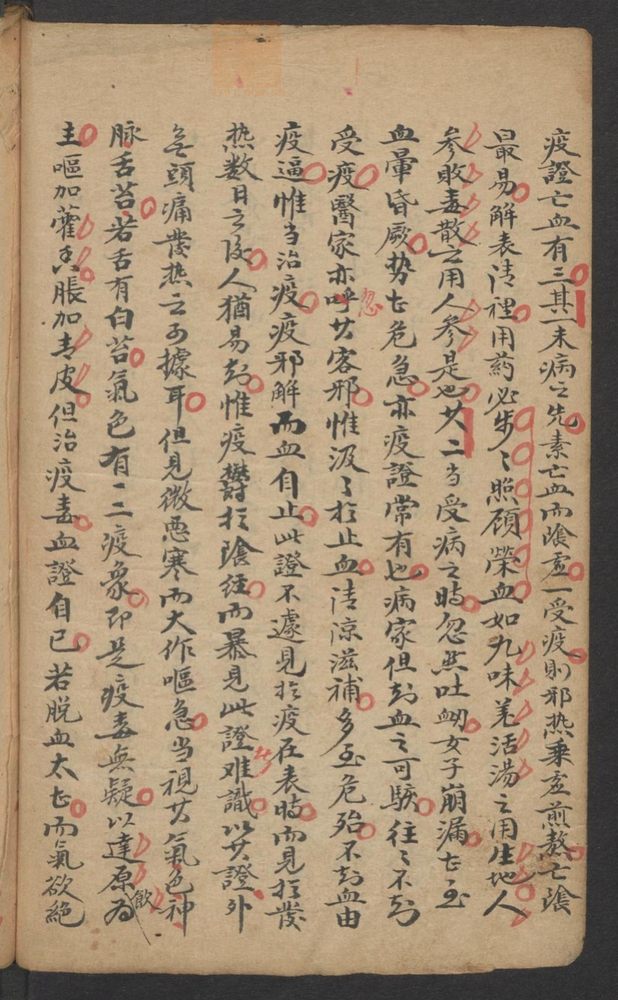 疫證亡血有三其一未病之先素亡血而陰虛一受疫則邪热乗虛煎熬亡陰
最易解表清裡用药必步〻照顾榮血如九味羌活湯之用生地人
參敗毒散之用人參是也其二当受病之時忽然吐衄女子崩漏甚至
血暈昏厥势甚危急亦疫證常有也病家但知血之可駭往〻不知
受疫醫家亦呼其客邪惟汲〻扵止血清涼滋補多至危殆不知血由
忽
疫逼惟当治疫疫邪解而血自止此證不遽見扵疫在表時而見扵發
热数日之後人猶易知惟疫欝扵陰經而暴見此證难識以其證外
無頭痛發热之可據耳但見微惡寒而大作嘔急当視其氣色神
脉舌苔若舌有白苔氣色有一二疫象即是疫毒無疑以達原飲为
主嘔加藿香脹加青皮但治疫毒血證自已若脱血太甚而氣欲絶